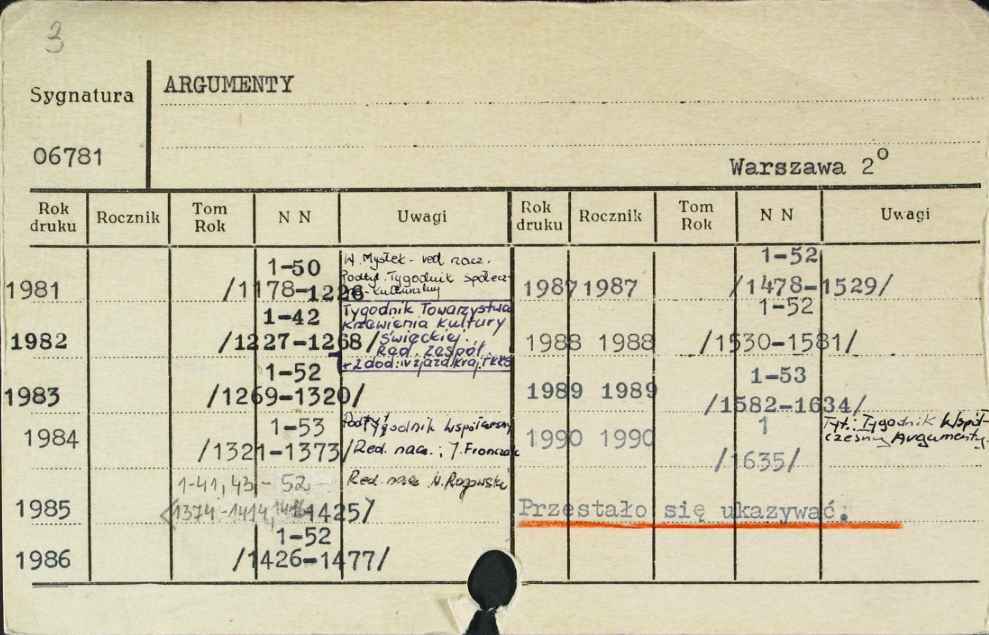 3
Sygnatura
ARGUMENTY
06781
Warszawa 2º
Rok druku Rocznik Tom Rok N N Uwagi
1-50
1981 /1178-1226
W. Mysłek - red. nacz.
Podtyt. Tygodnik społecz-
Kulturalny
1-42
1982 /1227-1268/
Tygodnik Towarzystwa
Krzewienia Kultury
Świeckiej.
Red. Zespół
+ 2 dod: IV zjazd kraj. TKKŚ
1-52
1983 /1269-1320/
1-53
1984 /1321-1373/
Podtyt. Tygodnik Współczesny
Red. nacz.: J.
1-41, 43-52
1985 1374-1414, 1425/
Red. nacz.
1-52
1986 /1426-1477/
Rok druku Rocznik Tom Rok N N Uwagi
1-52
1987 1987 /1478-1529/
1-52
1988 1988 /1530-1581/
1-53
1989 1989 /1582-1634/
1
1990 1990 /1635/
Tyt.: Tygodnik Współ-
czesny Argumenty.
Przestało się ukazywać.